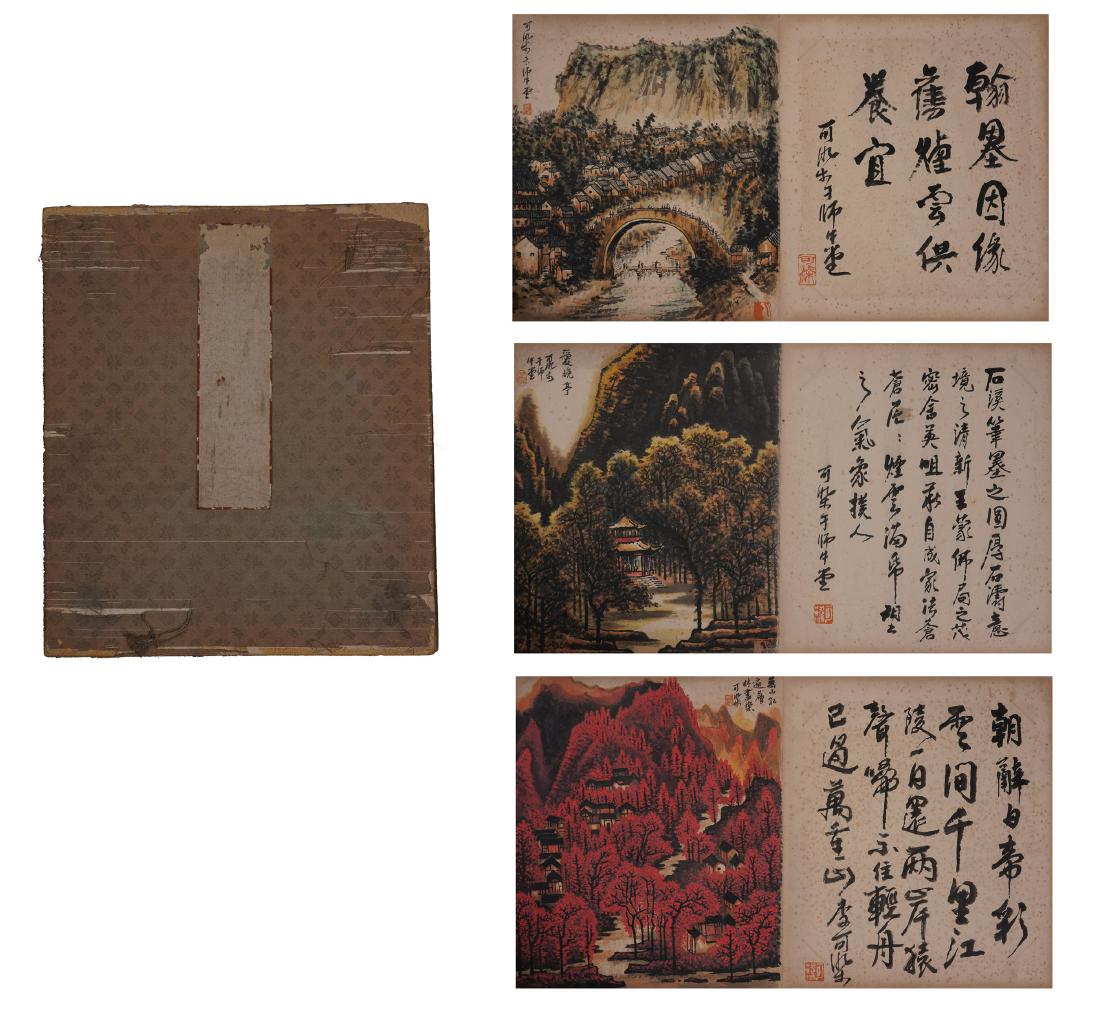 可染于師牛堂
翰墨因緣
舊煙雲供
養宜
可染于師牛堂
愛晚亭
可染
于師
牛堂
石溪筆墨之圓厚石濤意
境之清新王蒙佈局之茂
密含英咀華自成家法蒼
煙雲滿帋
之氣象撲人
可染于師牛堂
萬山紅
遍層
林盡染
可染
朝辭白帝彩
雲間千里江
陵一日還兩岸猿
聲啼不住輕舟
已過萬重山李可染